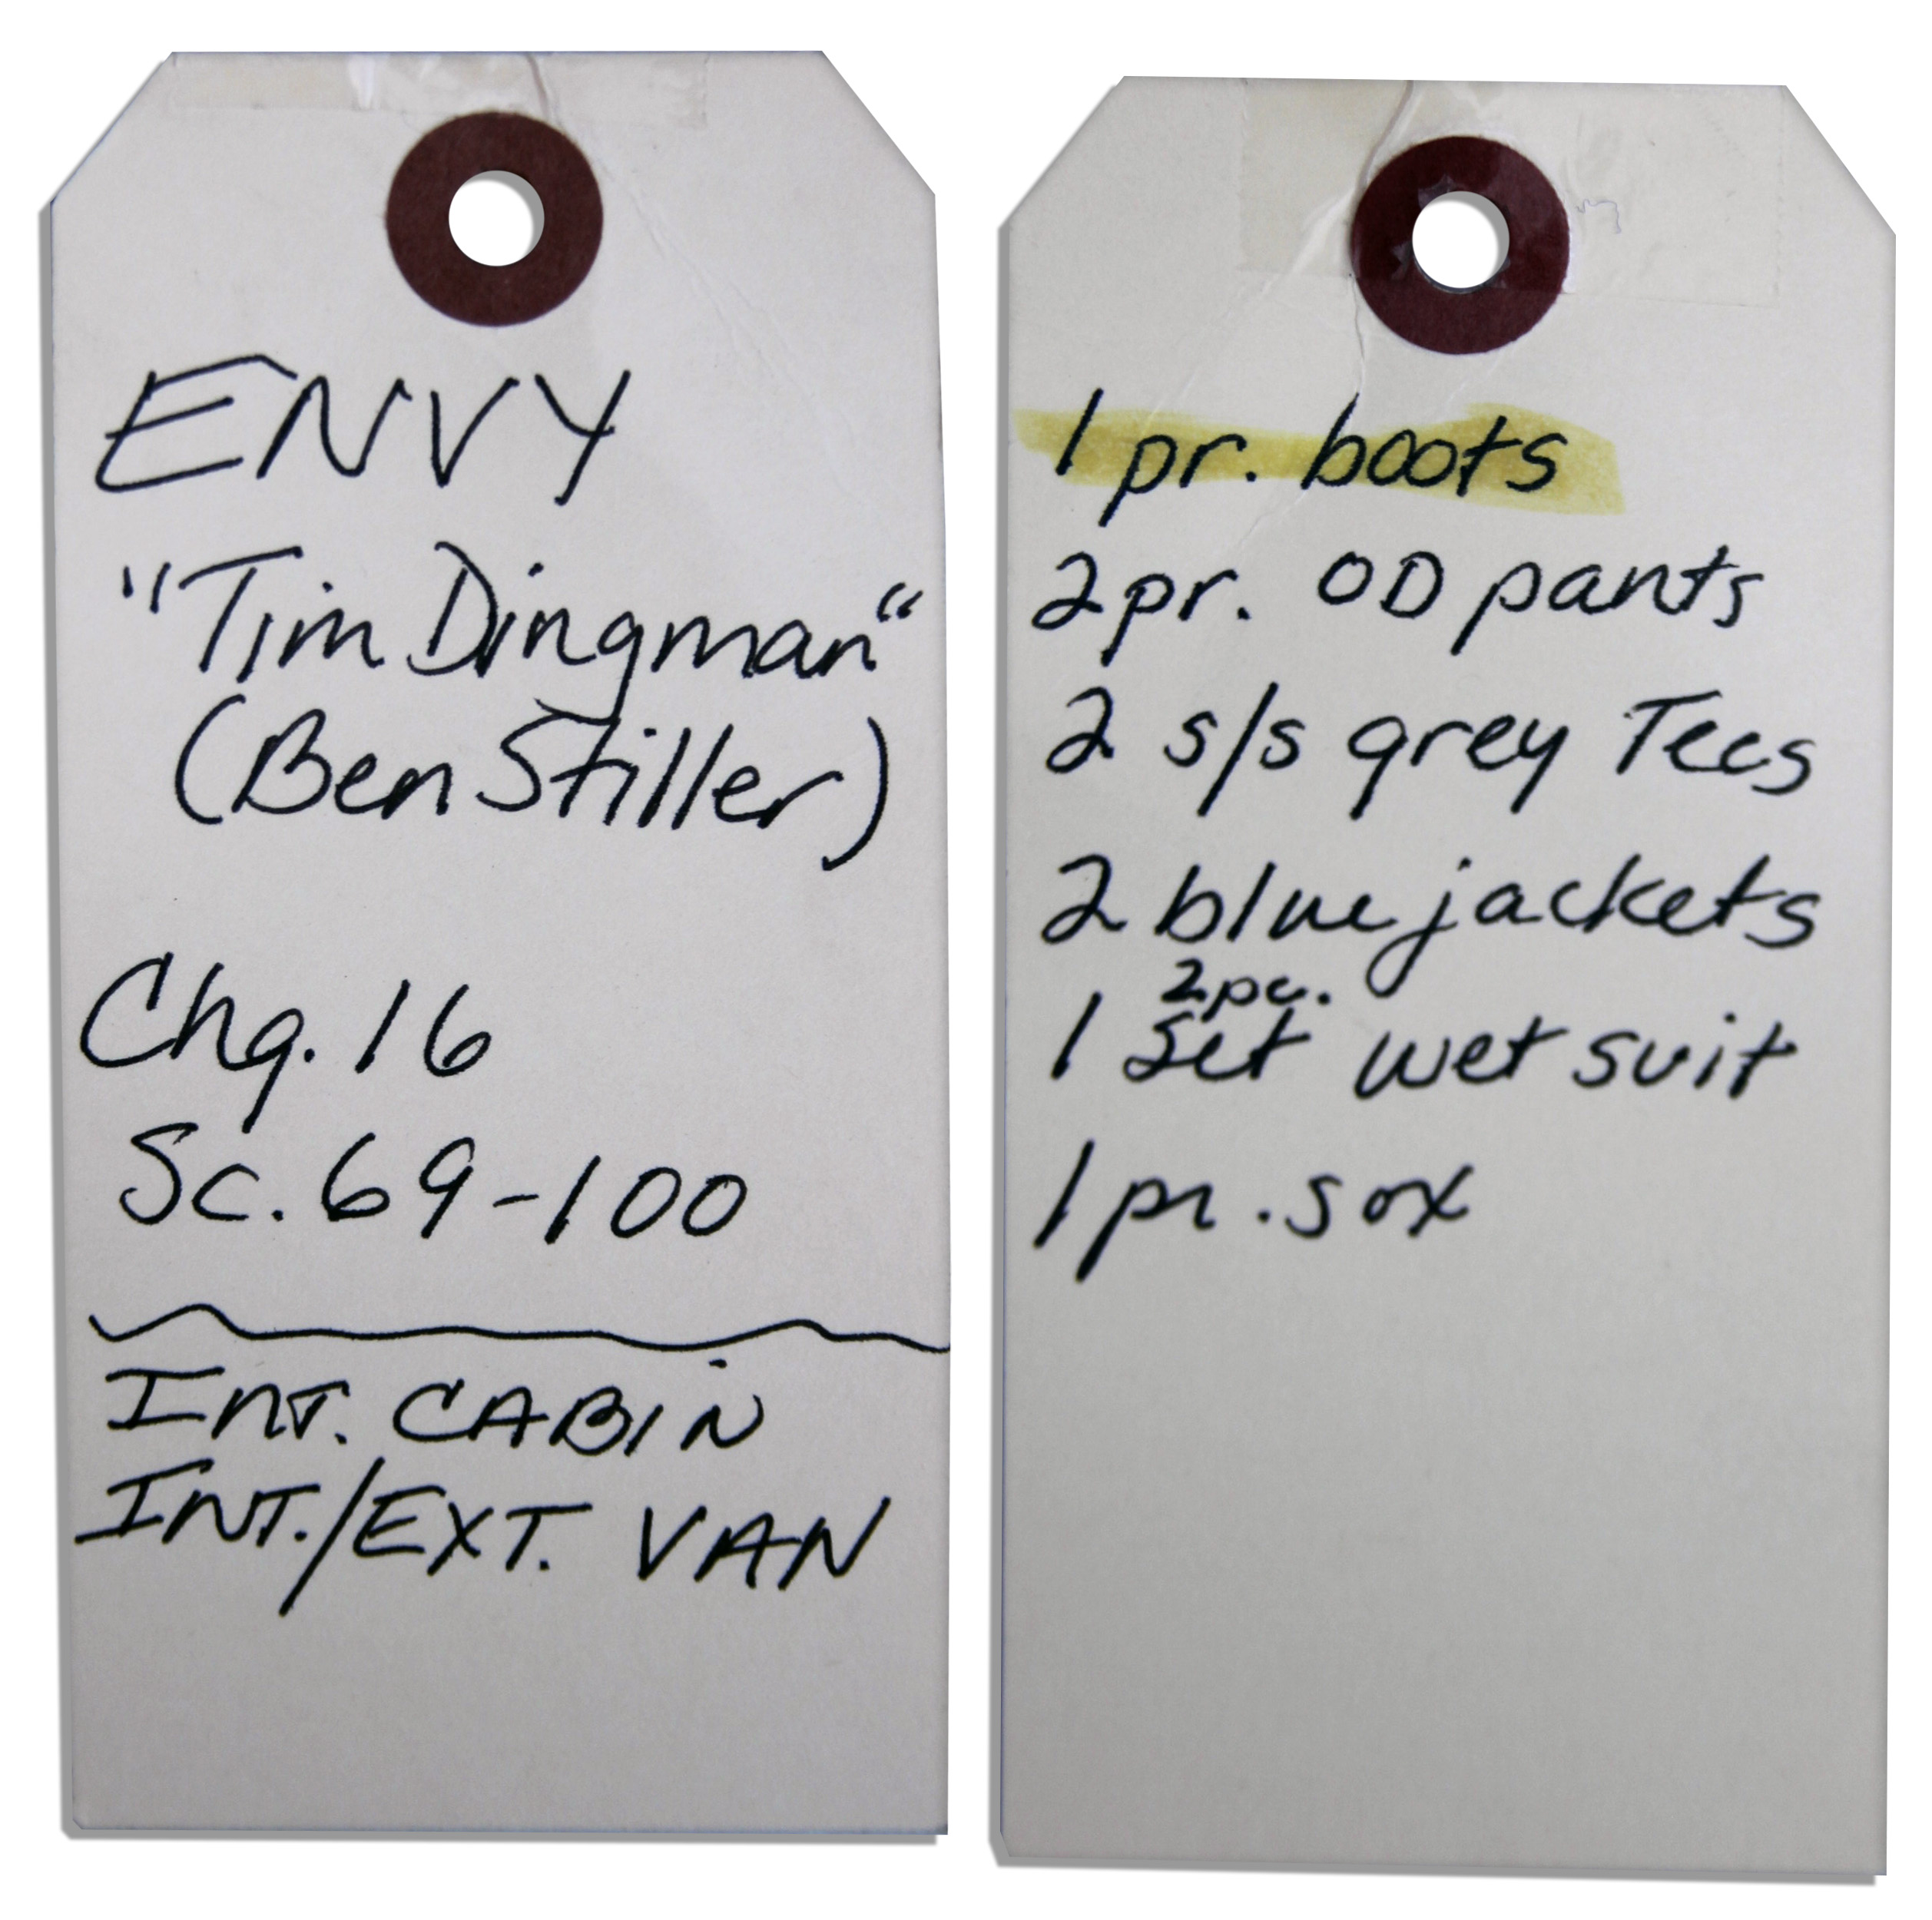 ENVY
"Tim Dingman"
(Ben Stiller)
Chg. 16
Sc. 69-100
INT. CABIN
INT./EXT. VAN
1 pr. boots
2 pr. OD pants
2 s/s grey Tees
2 blue jackets
2pc.
1 Set wet suit
1 pr. sox